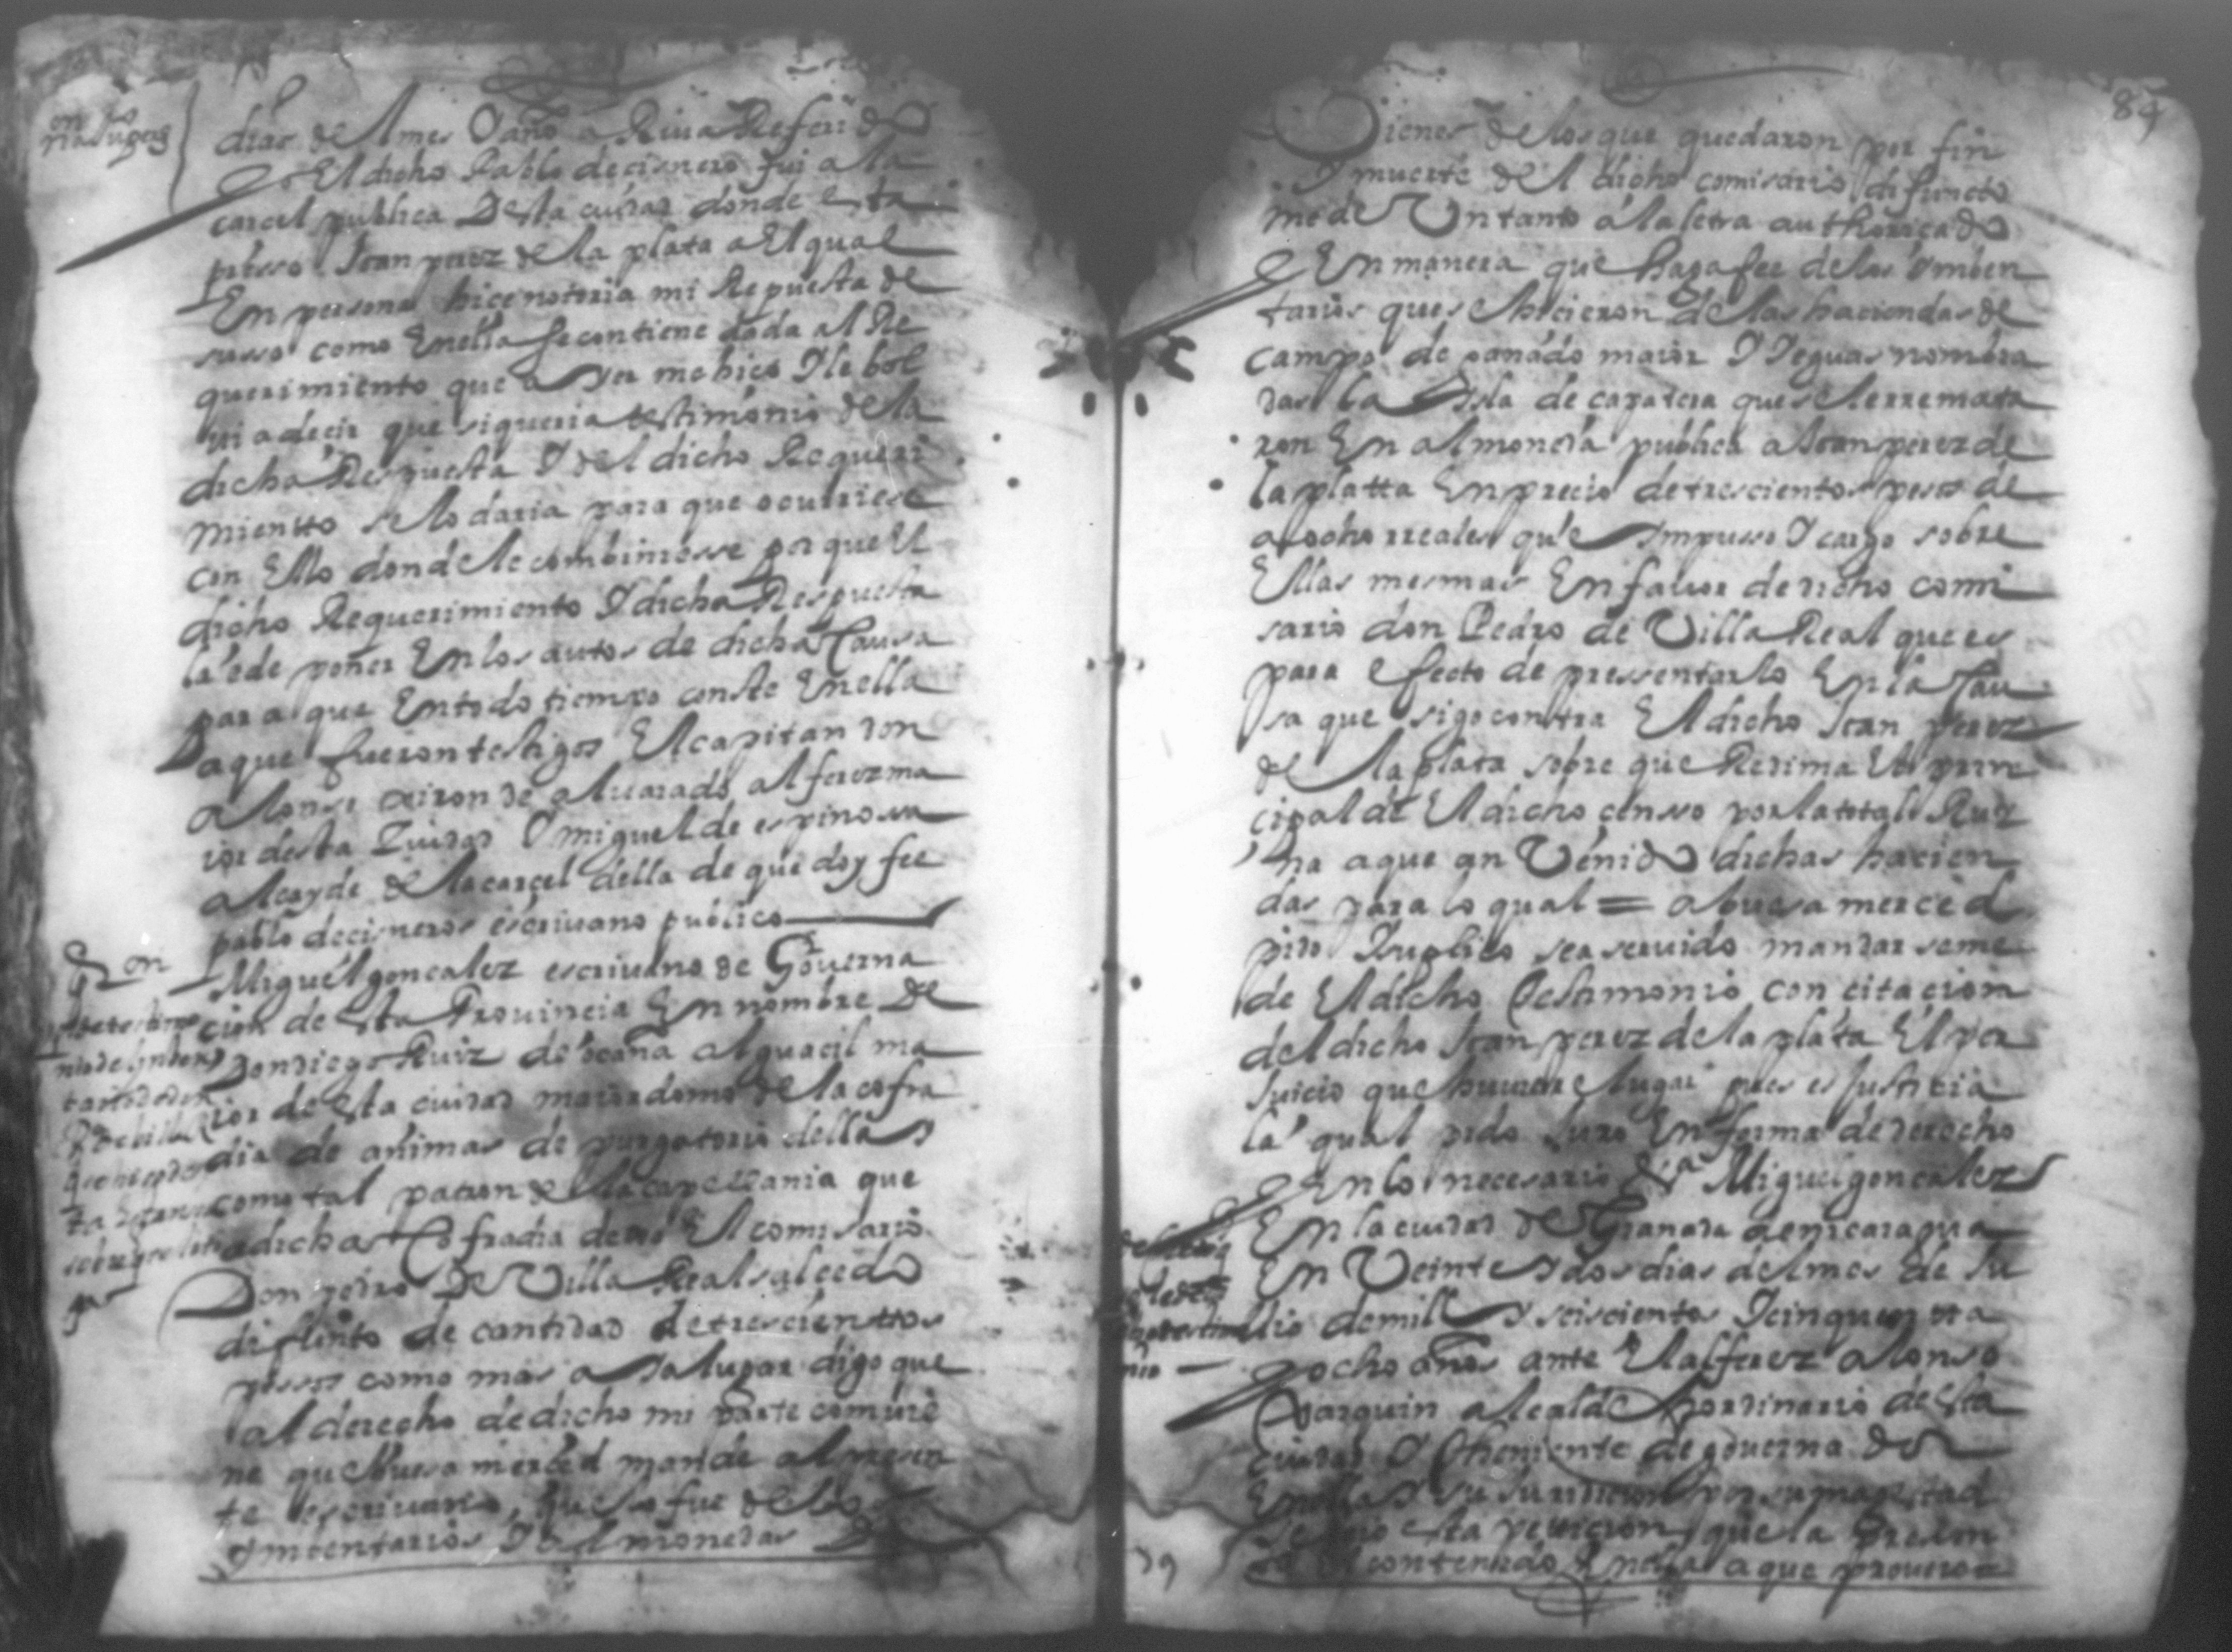 dias del mes y año a Riua Referido
El dicho Pablo de cisneros fui a la
carcel publica Desta ciudad donde esta
presso Joan perez de la plata a El qual
En persona hice notoria mi Repuesta de
susso como En ella se contiene dada al Re
querimiento que a Yer me hico Y le bol
ui a decir que si queria testimonio de la
dicha Respuesta Y del dicho Requeri
miento se lo daria para que ocurriese
con Ello donde le combiniesse por que El
dicho Requerimiento Y dicha Respuesta
la e de poner En los autos de dicha Causa
para que En todo tiempo conste En ella
a que fueron testigos El capitan don
alonso xiron de aluarado alferez ma
ior desta Ciudad Y miguel de espinosa
alcayde de la carcel della de que doy fee
pablo de cisneros escriuano publico
Miguel goncalez escriuano de Gouerna
cion de esta Prouincia En nombre de
Don diego Ruiz de ocaña alguacil ma
ior de esta ciudad maiordomo de la cofra
dia de animas de purgatorio della Y
como tal patron de la capellania que
a dicha Cofradia dexó El comisario
Don pedro De Villa Real salcedo
difunto de cantidad de trescienttos
pessos como mas a Ya lugar digo que
al derecho de dicho mi parte combie
ne que Vuesa merced mande al presen
te escriuano, que lo fue de los
Ymbentarios Y almonedas De
84
Vienes de los que quedaron por fin
Y muerte del dicho comisario difuncto
me de Un tanto a la letra authoricado
En manera que haga fee de los Ymben
tarios que se hicieron de las haciendas de
campo de ganado maior Y Yeguas nombra
das la Ysla de capatera que se le rremata
ron En almoneda publica a Joan perez de
la platta En precio de trescientos pesos de
a ocho rreales que Ympusso Y cargo sobre
Ellas mesmas En fauor de dicho comi
sario don Pedro de Villa Real que es
para efecto de pressentarlo En la Cau
sa que sigo contra El dicho Joan perez
de la plata sobre que Redima El prin
cipal de El dicho censso por la total Ruy
na a que an Venido dichas hacien
das para lo qual = a buesa merced
pido Y suplico sea seruido mandar se me
de El dicho Testimonio con citacion
del dicho Joan perez de la plata El per
juicio que huuiere lugar pues es Justicia
la qual pido Juro En forma de derecho
En lo necesario Miguel goncalez
En la ciudad de Granada de nicaragua
En Veinte Y dos dias del mes de Ju
lio de mill Y seiscientos Y cinquenta
Y ocho años ante El alferez alonso
alcalde hordinario de esta
ciudad Y Theniente de gouernador
En ella Y su Jurisdicion por su magestad
se leyo esta peticion que la presen
to El contenido En ella a que proueio =